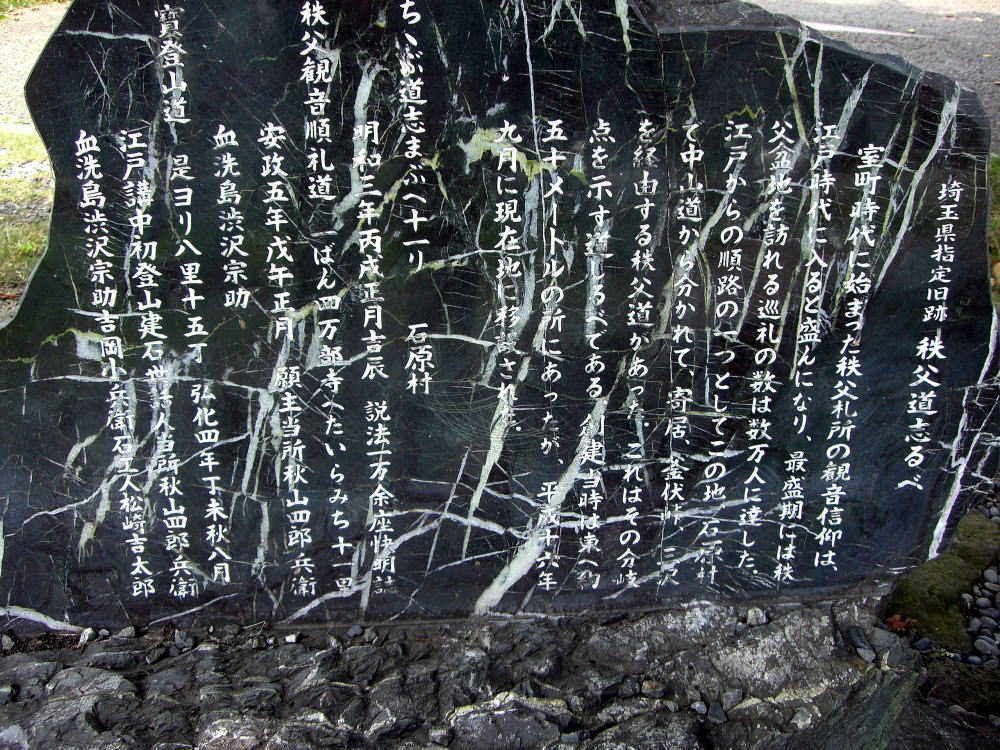 埼玉県指定旧跡 秩父道志るべ
室町時代に始まった秩父札所の観音信仰は、
江戸時代に入ると盛んになり、最盛期には秩
父盆地を訪れる巡礼の数は数万人に達した。
江戸からの順路の一つとしてこの地 石原村
で中山道から分かれて、寄居、釜伏峠、三沢
を経由する秩父道があった。これはその分岐
点を示す道しるべである。創建当時は東へ約
五十メートルの所にあったが、平成十六年
九月に現在地に移設された。
ちゝぶ道志まぶへ十一リ 石原村
明和三年丙戌正月吉辰 説法一万余座快明誌
秩父観音順礼道 一ばん四万部寺へたいらみち十一里
安政五年戊午正月 願主当所秋山四郎兵衛
血洗島渋沢宗助
寳登山道 是ヨリ八里十五丁 弘化四年丁未秋八月
江戸講中初登山建石世話人当所秋山四郎兵衛
血洗島渋沢宗助吉岡小兵衛石工人松崎吉太郎